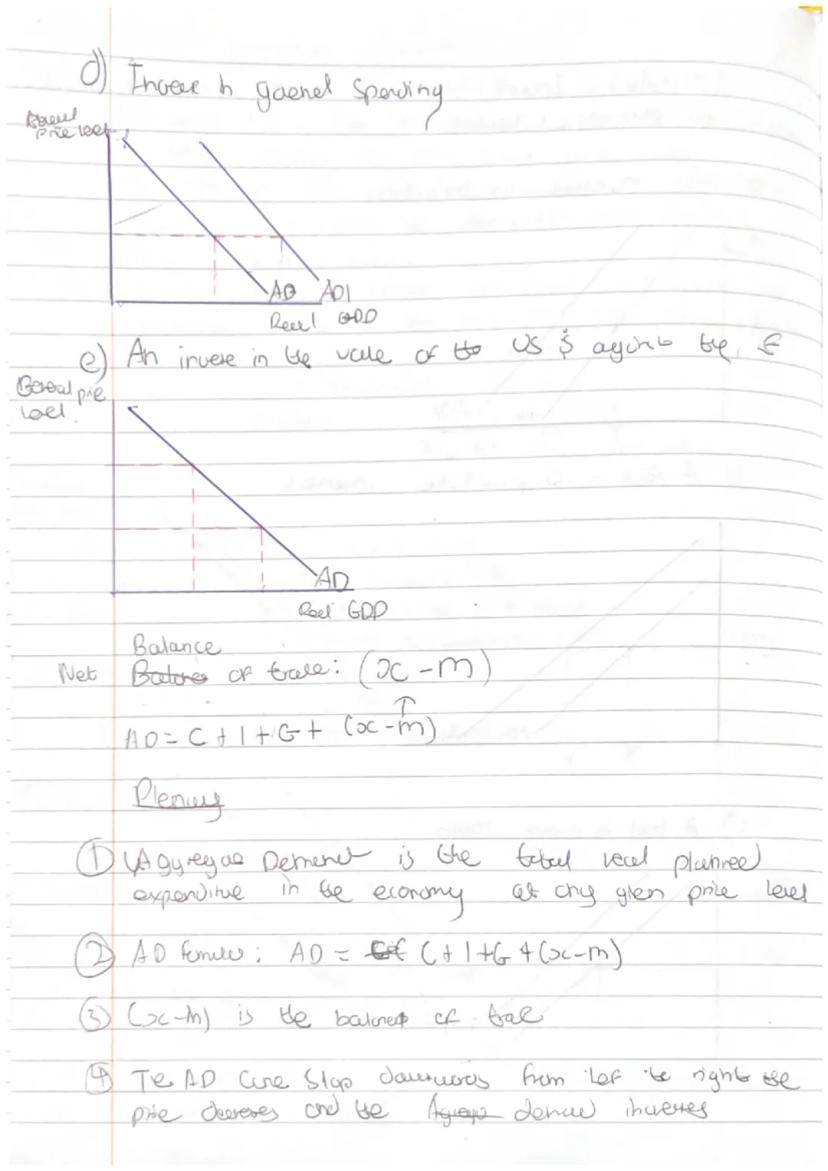 d) Increase in general Spending
General
price level
AD AD1
Real GDP
e) An increase in the value of to US $ against the £
General price
level.
AD
Real GDP
Balance
Net of trade: (x - m)
↑
AD = C + I + G + (x - m)
Plenary
① Aggregate Demand is the total real planned
expenditure in the economy at any given price level
② AD formula: AD = C + I + G + (x - m)
③ (x - m) is the balance of trade
④ The AD Curve Slop downwards from lef to right the
price decreses and the demand increses